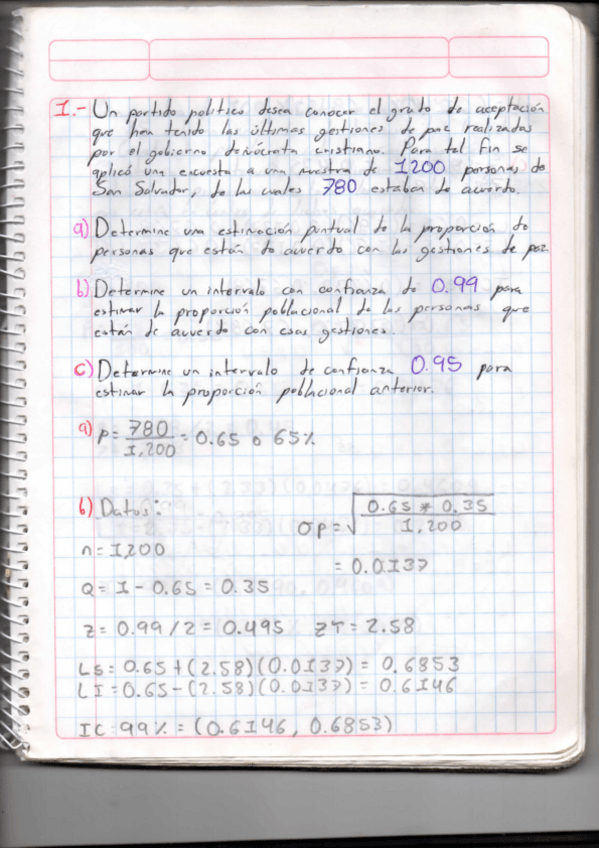 1.- Un partido politico desea conocer el grado de aceptación
que han tenido las últimas gestiones de paz realizadas
por el gobierno demócrata cristiano. Para tal fin se
aplicó una encuesta a una muestra de 1200 personas de
San Salvador, de las cuales 780 estaban de acuerdo.
a) Determine una estimación puntual de la proporción de
personas que están de acuerdo con las gestiones de paz
b) Determine un intervalo con confianza de 0.99 para
estimar la proporción poblacional de las personas que
están de acuerdo con esas gestiones.
c) Determine un intervalo de confianza 0.95 para
estimar la proporción poblacional anterior.
a) P = 780 / 1,200 = 0.65 o 65%
b) Datos:
σp = √ 0.65 * 0.35 / 1,200
n = 1,200
= 0.0137
Q = 1 - 0.65 = 0.35
Z = 0.99 / 2 = 0.495 ZT = 2.58
LS = 0.65 + (2.58)(0.0137) = 0.6853
LI = 0.65 - (2.58)(0.0137) = 0.6146
IC 99% = (0.6146, 0.6853)